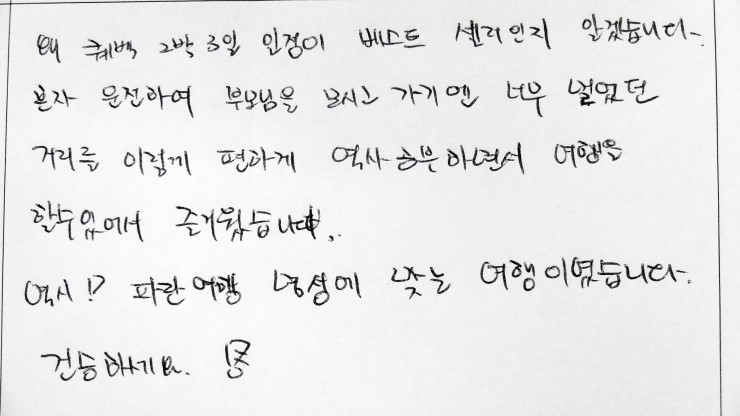 왜 퀘백 2박 3일 일정이 베스트 셀러인지 알겠습니다.
혼자 운전하여 부모님을 모시고 가기엔 너무 멀었던
거리를 이렇게 편하게 역사 공부하면서 여행을
할수있어서 즐거웠습니다.
역시!? 파란여행 명성에 맞는 여행이였습니다.
건승하세요.